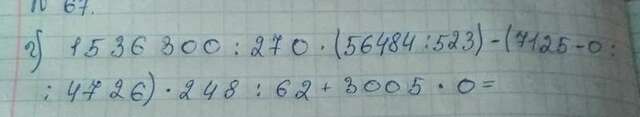 № 67.
г) 1536300 : 270 · (56484 : 523) - (7125 - 0 :
: 4726) · 248 : 62 + 3005 · 0 =